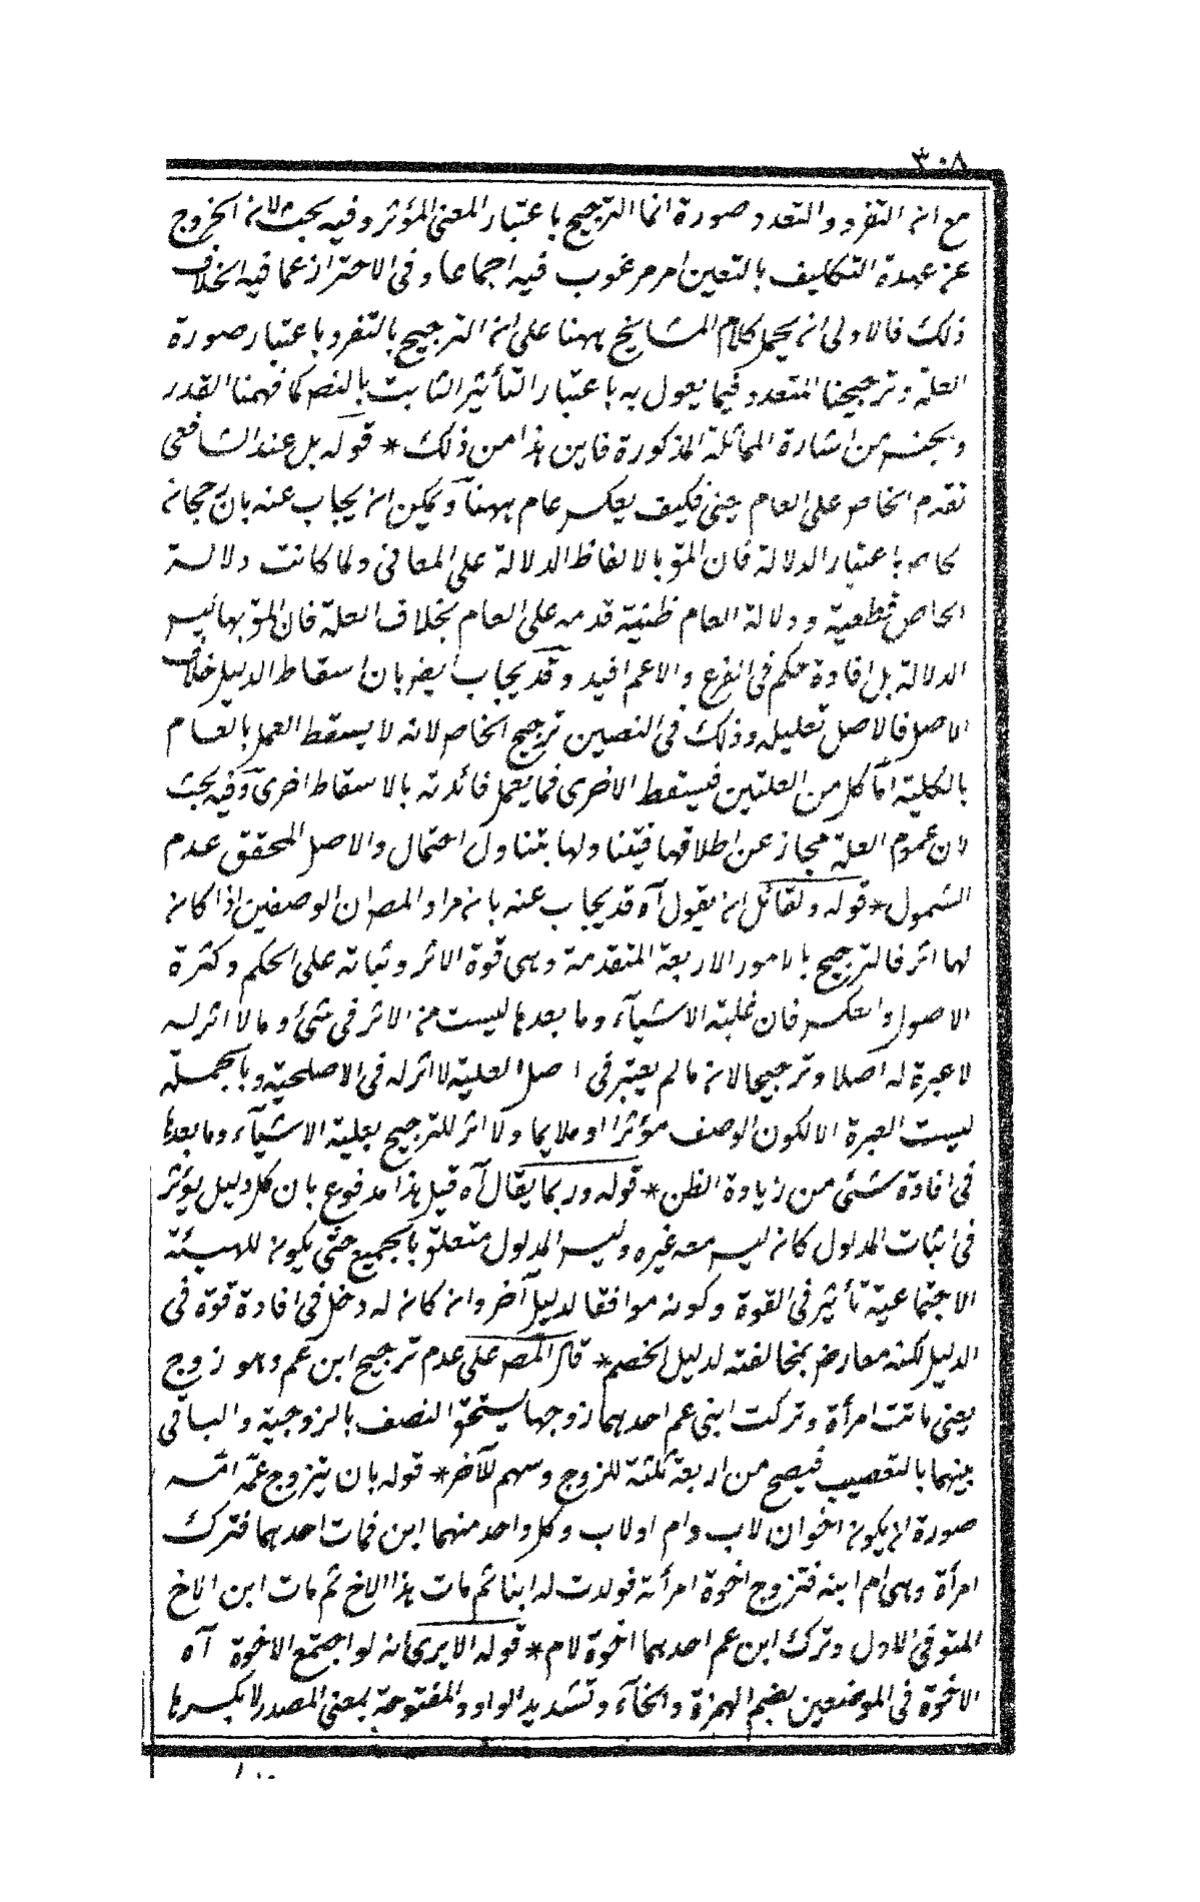 ٣٠٨
مع ان التفرد والتعدد صورة انما الترجيح باعتبار المعنى المؤثر وفيه بحث لان الخروج
عن عهدة التكليف بالتعين امر مرغوب فيه اجماعا وفى الاحتراز عما فيه الخلاف
ذلك فالاولى ان يحمل كلام المشايخ ههنا على ان الترجيح بالتفرد باعتبار صورة
العلة وترجيحنا المتعدد فيما يعول به باعتبار التأثير الثابت بالنص كما فهمنا القدر
والجنس من اشارة المماثلة المذكورة فاين هذا من ذلك * قوله بل عند الشافعى
تقدم الخاص على العام حينئ فكيف يعكس عام ههنا ويمكن ان يجاب عنه بان رجحانه
باعتبار الدلالة فان المق بالالفاظ الدلالة على المعانى ولما كانت دلالة
الخاص قطعية ودلالة العام ظنية قدمه على العام بخلاف العلة فان المق بها ليس
الدلالة بل افادة حكم فى الفرع والاعم افيد وقد يجاب ايض بان اسقاط الدليل خلاف
الاصل فالاصل تعليله وذلك فى النصين ترجيح الخاص لانه لا يسقط العمل بالعام
بالكلية اما كل من العلتين فيسقط الاخرى فما يعمل فائدته بالاسقاط اخرى وفيه بحث
لان عموم العلة مجاز عن اطلاقها فيتناولها بتناول احتمال والاصل المحقق عدم
الشمول * قوله ولقائل ان يقول آه قد يجاب عنه بان مراد المص ان الوصفين اذا كان
لها اثر فالترجيح بالامور الاربعة المتقدمة وهى قوة الاثر وثباته على الحكم وكثرة
الاصول والعكس فان غلبة الاشيآء وما بعدها ليست من الاثر فى شئ وما لا اثر له
لا عبرة له اصلا وترجيحا لان ما لم يعتبر فى اصل العلية لا اثر له فى الاصلحية وبالجملة
ليست العبرة الا لكون الوصف مؤثرا او ملايما ولا اثر للترجيح بغلبة الاشيآء وما بعدها
فى افادة شئ من زيادة الظن * قوله وربما يقال آه قيل هذا مدفوع بان كل دليل يؤثر
فى اثبات المدلول كان ليس معه غيره وليس المدلول متعلق بالجميع حتى يكون للهيئة
الاجتماعية تأثير فى القوة وكونه موافقا لدليل آخر وان كان له دخل فى افادة قوة فى
الدليل لكنه معارض بمخالفته لدليل الخصم * قال المص على عدم ترجيح ابن عم وهو زوج
يعنى ماتت امرأة وتركت ابنى عم احدهما زوجها يستحق النصف بالزوجية والباقى
بينهما بالتعصيب فيصح من اربعة ثلثة للزوج وسهم للآخر * قوله بان يتزوج عمه امه
صورة ان يكون اخوان لاب وام او لاب وكل واحد منهما ابن فمات احدهما فترك
امرأة وهى ام ابنه فتزوج اخوة امرأته فولدت له ابنا ثم مات هذا الاخ ثم مات ابن الاخ
المتوفى الاول وترك ابن عم احدهما اخوة لام * قوله الا يرى انه لو اجتمع الاخوة آه
الاخوة فى الموضعين بضم الهمزة والخآء وتشديد الواو والمفتوحة بمعنى المصدر لا بكسرها